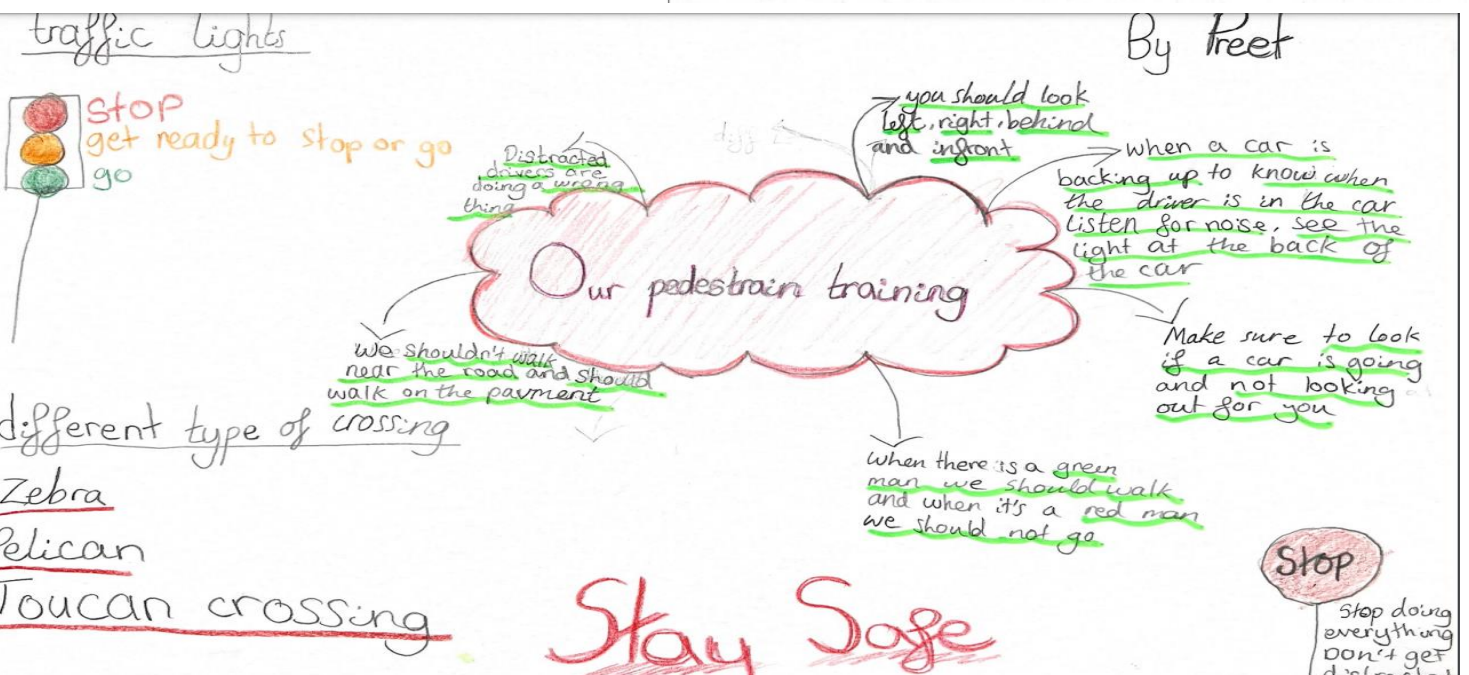 traffic lights
By Preet
Stop
get ready to stop or go
go
Distracted
drivers are
doing a wrong
thing
you should look
left, right, behind
and infront
when a car is
backing up to know when
the driver is in the car
Listen for noise, see the
light at the back of
the car
Our pedestrain training
we shouldn't walk
near the road and should
walk on the pavment
Make sure to look
if a car is going
and not looking
out for you
when there is a green
man we should walk
and when it's a red man
we should not go.
different type of crossing
Zebra
Pelican
Toucan crossing
Stay Safe
Stop
Stop doing
everything
Don't get
distracted